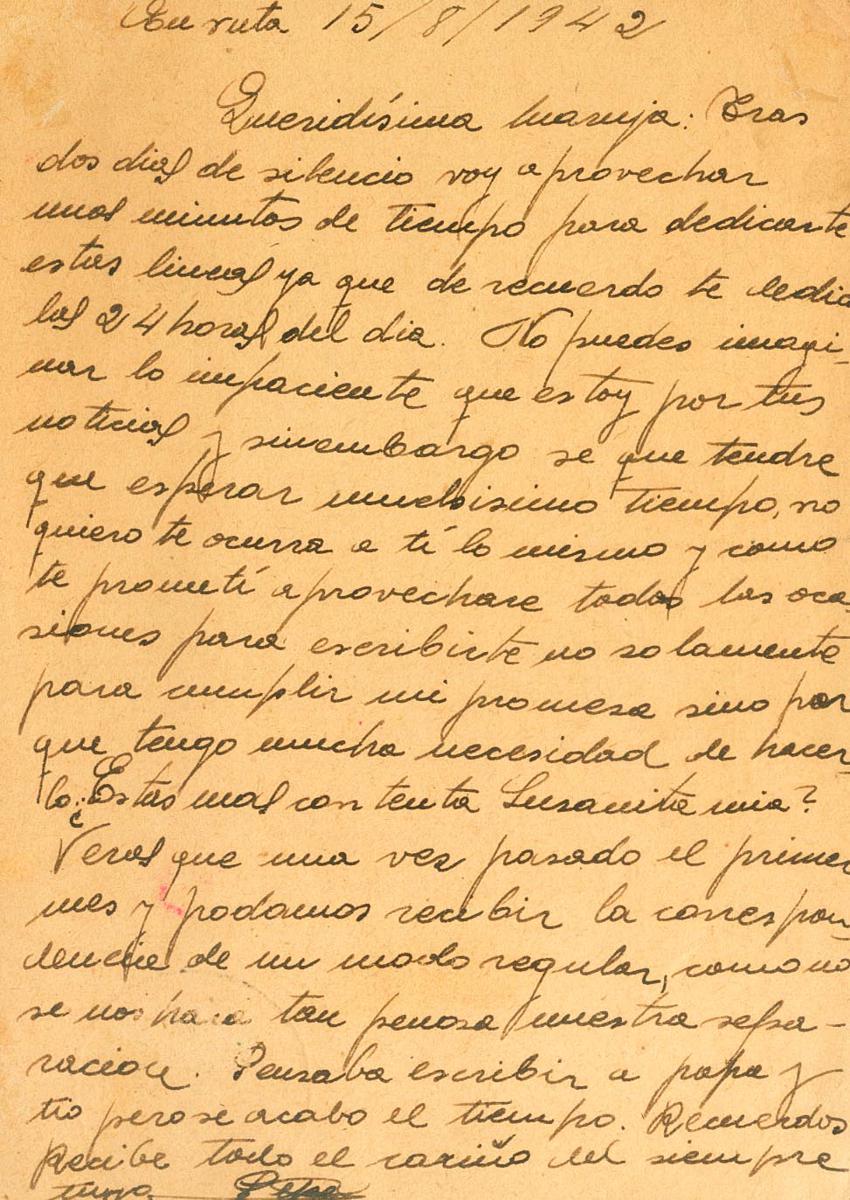 En ruta 15/8/1942
Queridísima Maruja: Tras
dos dias de silencio voy aprovechar
unos minutos de tiempo para dedicarte
estas lineas ya que de recuerdo te dedic
las 24 horas del dia. No puedes imagi-
nar lo impaciente que estoy por tus
noticias y sinembargo se que tendre
que esperar muchisimo tiempo, no
quiero te ocurra a tí lo mismo y como
te prometí aprovechare todas las oca-
siones para escribirte no solamente
para cumplir mi promesa sino por
que tengo mucha necesidad de hacer-
lo. ¿Estas mas contenta Susanita mia?
Veras que una vez pasado el primer
mes y podamos recibir la correspon-
dencia de un modo regular, como no
se nos hara tan penosa nuestra sepa-
racion. Pensaba escribir a papa y
tio pero se acabo el tiempo. Recuerdos
Recibe todo el cariño del siempre
tuyo Pepe